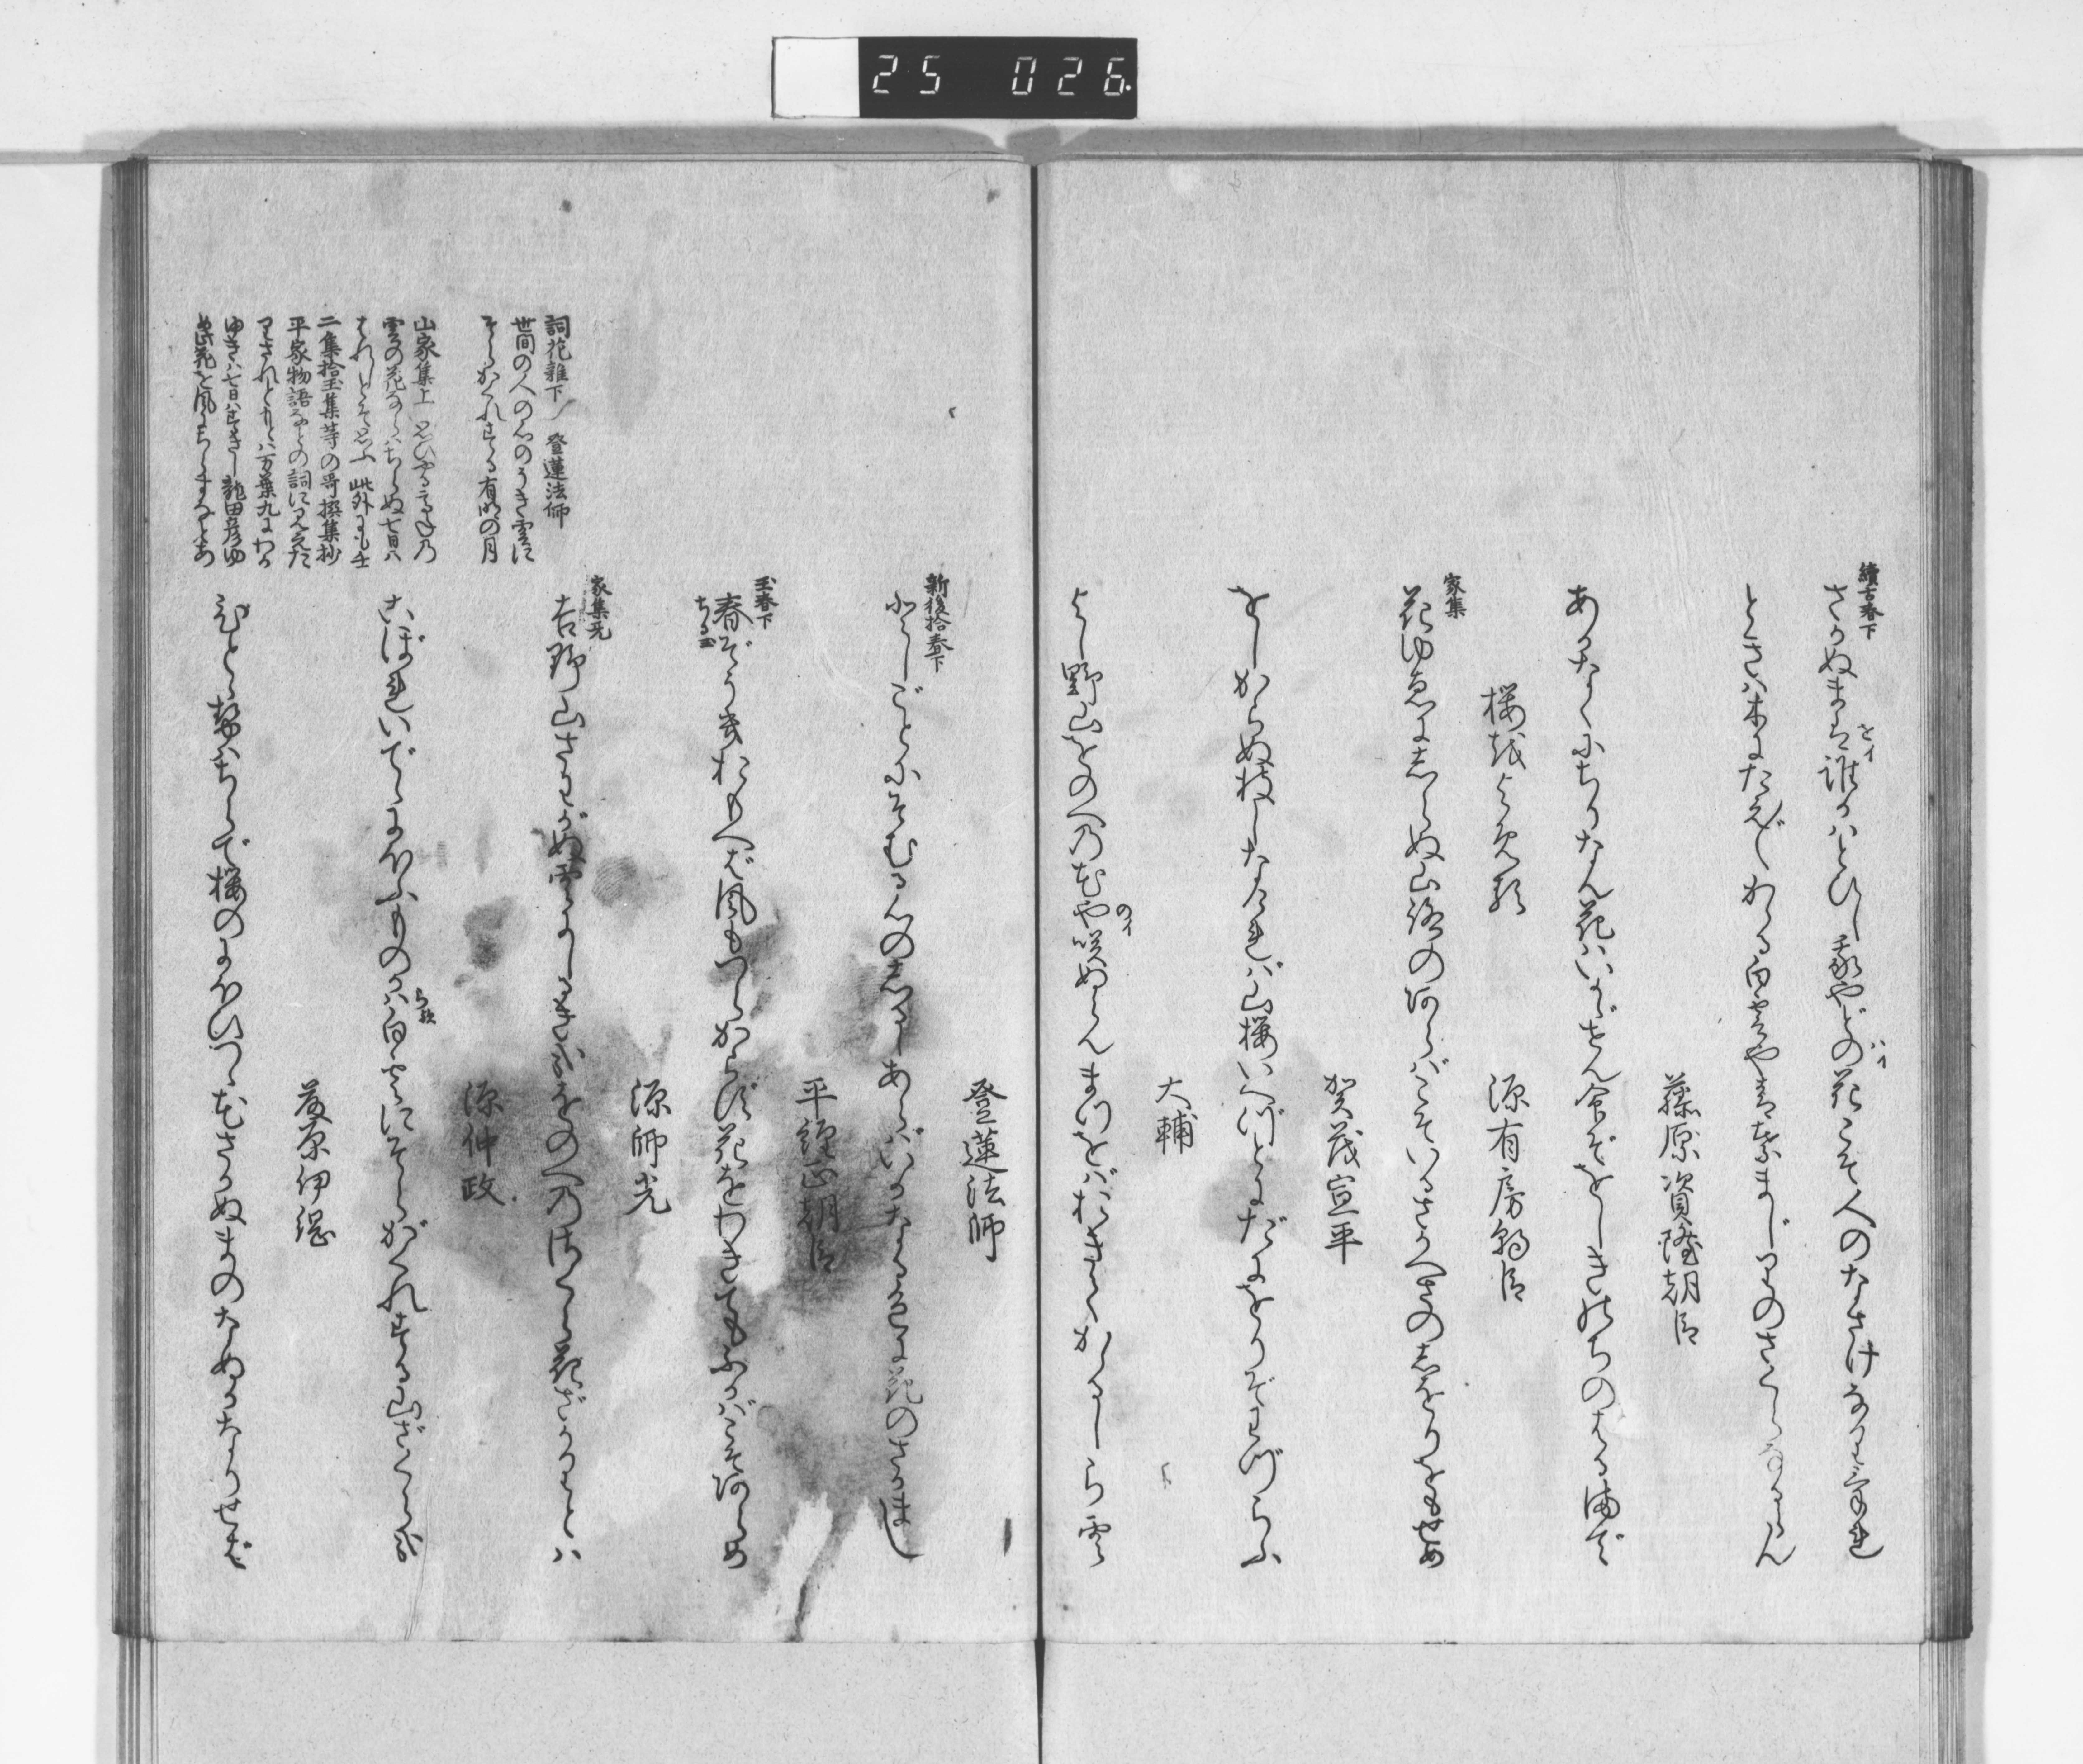 25 026
續古春下
さかぬまは誰かはとひし我やどの花こそ人のなさけなりけれ
をイ
ハイ
ときは木にたえ〴〵かゝる白雲や青葉まじりのさくらなるらん
藤原資隆朝臣
あかなくにちりなん花はいかゞせん命ぞをしきのちのはるまで
桜
源有房朝臣
家集
花ゆゑにしらぬ山路のあらばこそいらさきへさのしをりをもせめ
賀茂宣平
をしからぬ枝しなければ山櫻いへづとにだにをりぞわづらふ
大輔
よし野山をのへの花や咲ぬらんまつをばおきてかゝるしら雲
のイ
登蓮法師
新後拾春下
としごとにそむる心のしるしあらばいかなる色に花のさかまし
平経正朝臣
玉春下
春ぞうきおもへば風もつらからず花をわきてもふかばこそあらめ
ちる玉
源師光
家集
吉野山さわがぬ雲とみしるきはをのへのはつ花ざかりとは
源仲政
さほ
こぼれいでゝにほふものかは白雲にそらがくれする山ざくらかな
藤原伊綱
ひとゝせはちらで櫻のにほひつゝさかぬまのなぬかなりせば
詞花雜下 登蓮法師
世間の人の心のうき雲に
そらがくれする有明の月
山家集上 おもひやる高ねの
雲の花ならばちらぬ七日は
はれじとぞ思ふ 此外にも壬
二集拾玉集等の哥撰集抄
平家物語などの詞に見えた
りされどもとは万葉九にわが
ゆきは七日はすぎじ龍田彦ゆ
め此花を風にちらすなとあ